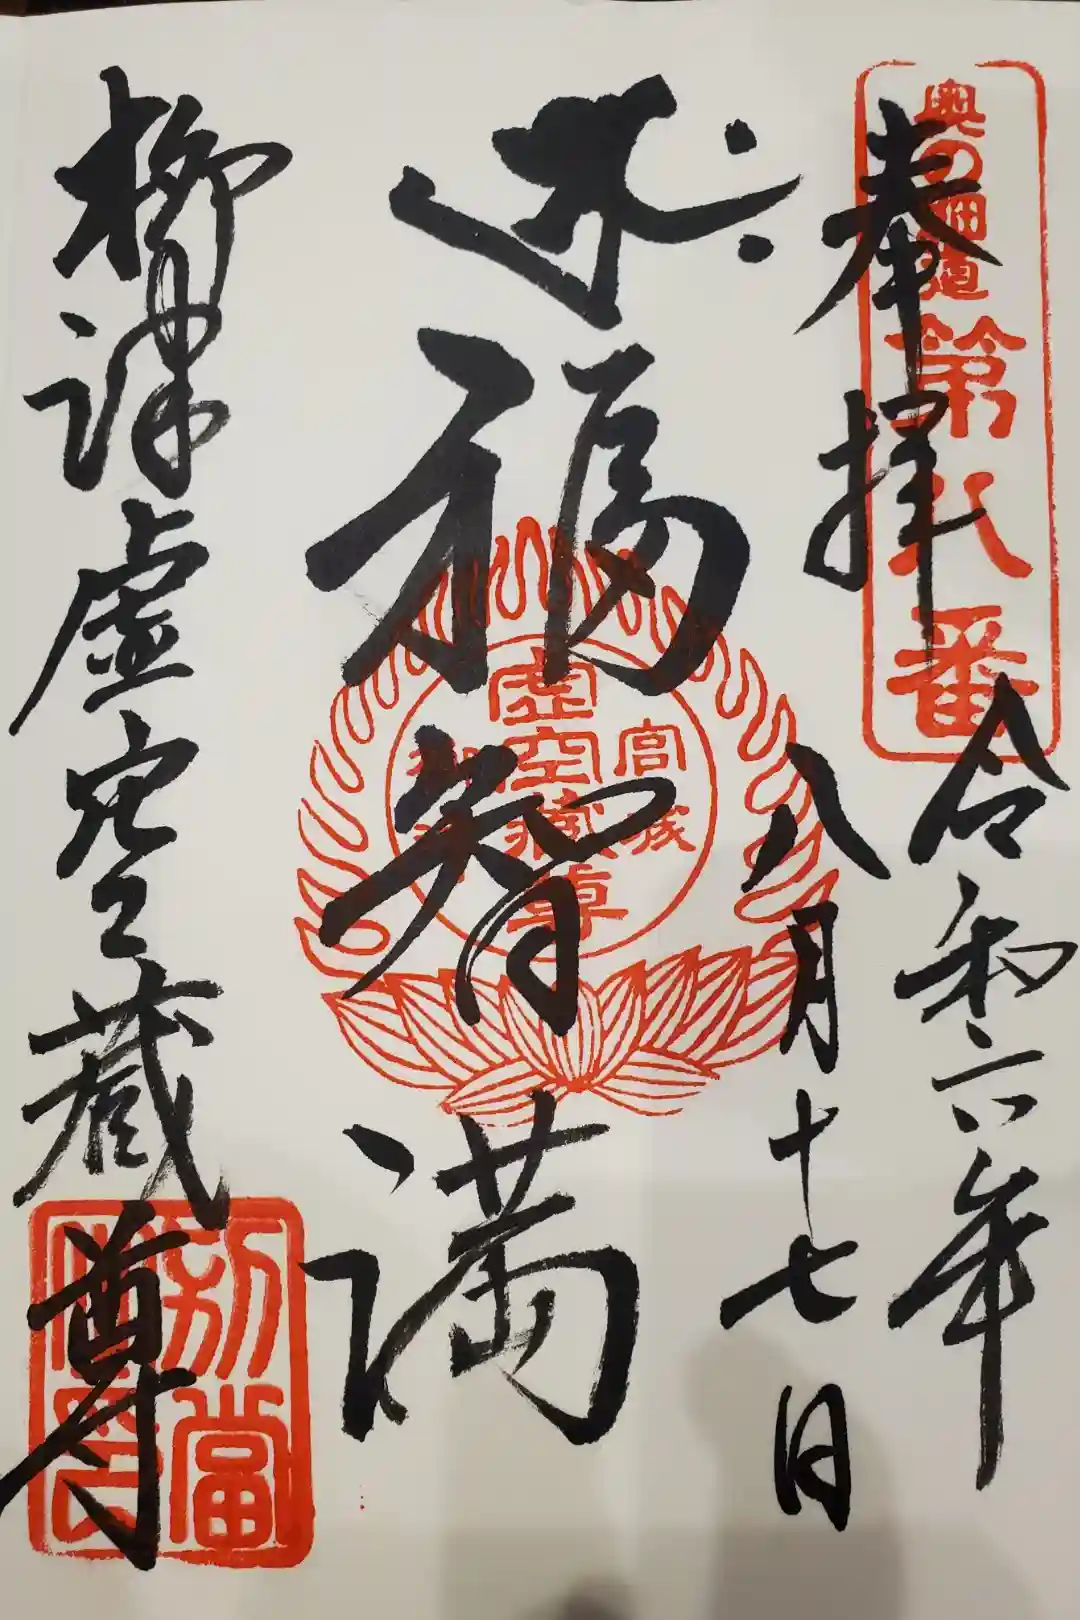 奉拝
令和六年
八月十七日
福智満
柳津虚空蔵尊
奥の細道
第八番
宮城
虚空蔵尊
別當